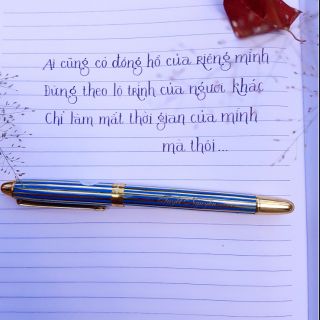 Ai cũng có đồng hồ của riêng mình
Đừng theo lộ trình của người khác
Chỉ làm mất thời gian của mình
mà thôi...